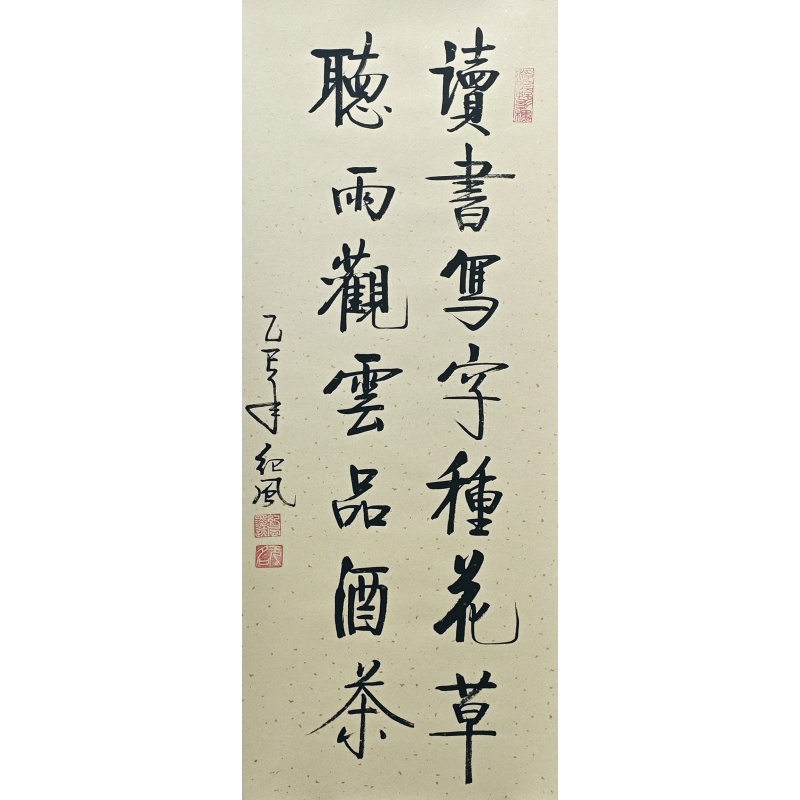 讀書寫字種花草
聽雨觀雲品酒茶
乙巳年 紀風